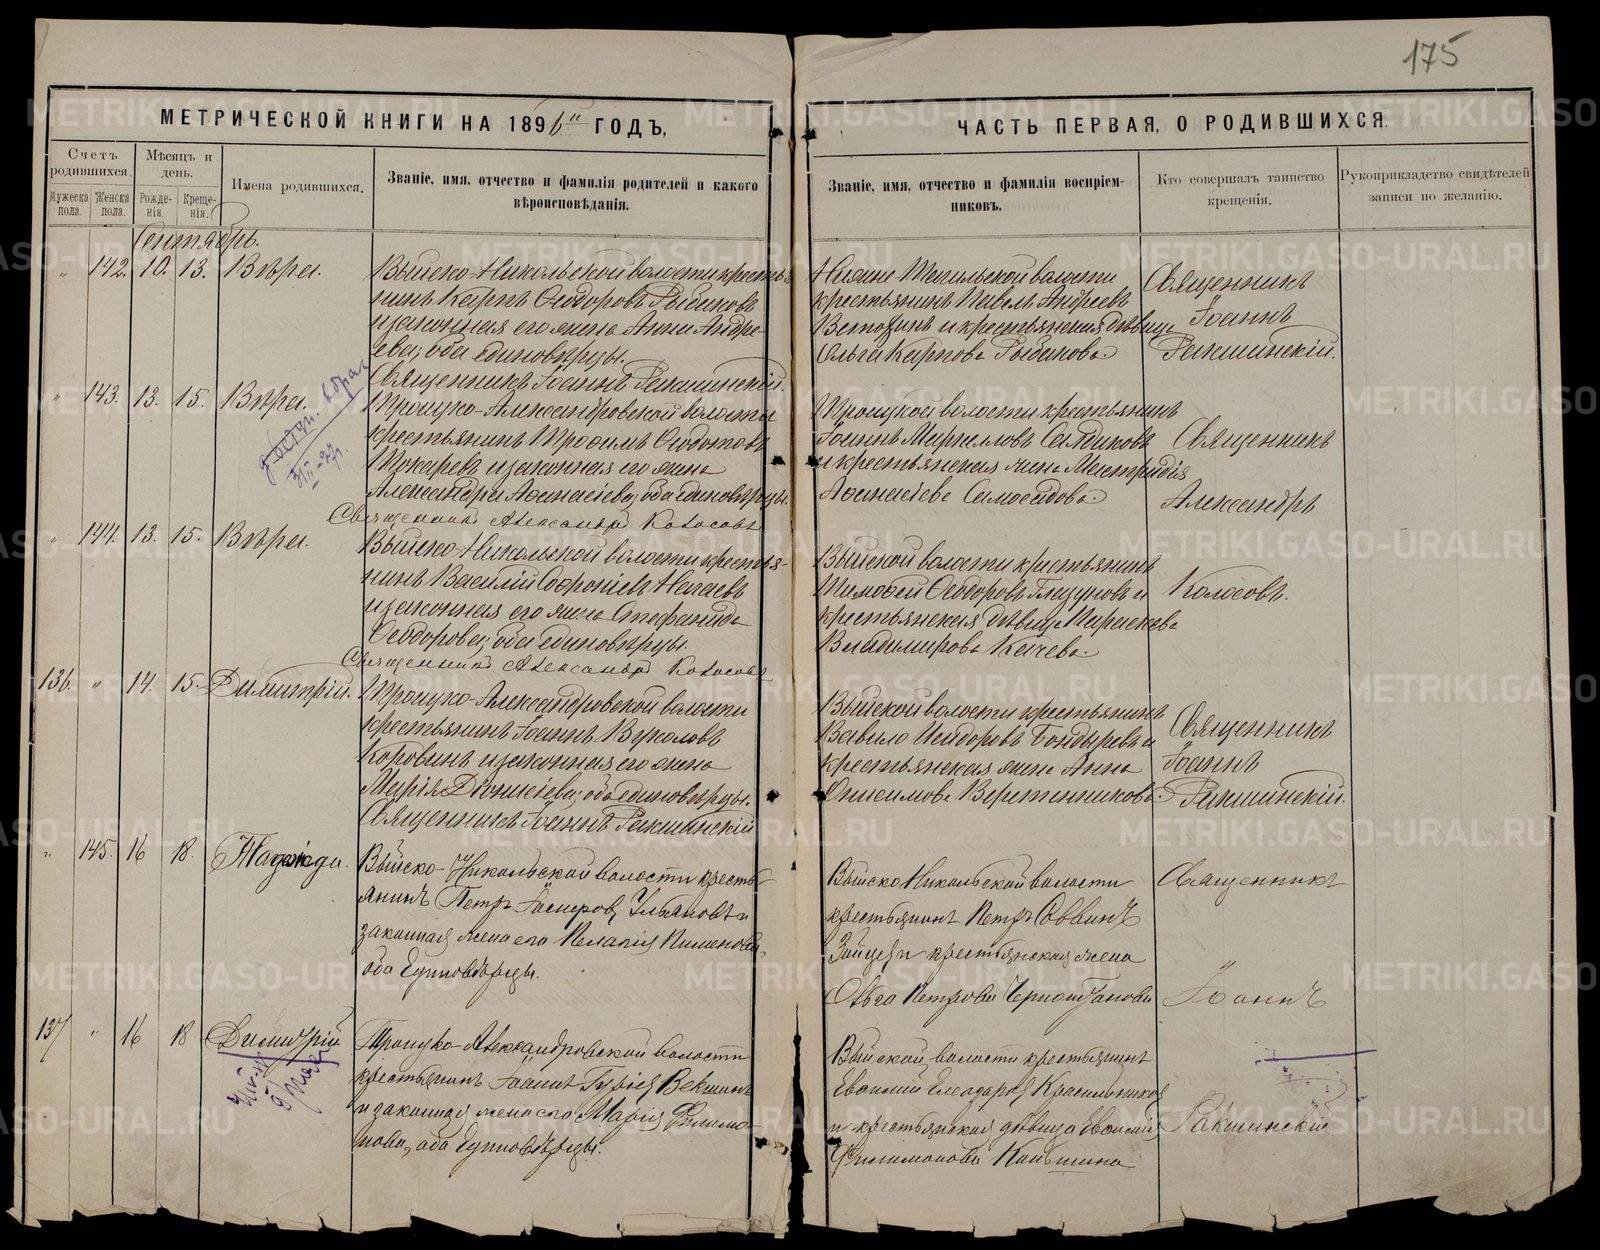 175
МЕТРИЧЕСКОЙ КНИГИ НА 1896 ГОДЪ,
ЧАСТЬ ПЕРВАЯ, О РОДИВШИХСЯ.
Счетъ родившихся.
Мужеска пола.
Женска пола.
Мѣсяцъ и день.
Рожденія.
Крещенія.
Имена родившихся.
Званіе, имя, отчество и фамилія родителей и какого вѣроисповѣданія.
Званіе, имя, отчество и фамилія воспріемниковъ.
Кто совершалъ таинство крещенія.
Рукоприкладство свидѣтелей записи по желанію.
Сентябрь.
" 142. 10. 13. Вѣра.
Выйско-Никольской волости крестья-
нинъ Карпъ Ѳеодоровъ Рыбаковъ
и законная его жена Анна Андре-
ева; оба единовѣрцы.
Священникъ Іоаннъ Ракшинскій.
Нижне-Тагильской волости
крестьянинъ Павелъ Андреевъ
и крестьянская дѣвица
Ольга Карпова Рыбакова.
Священникъ
Іоаннъ
Ракшинскій.
" 143. 13. 15. Вѣра.
Троицко-Александровской волости
крестьянинъ Трофимъ Ѳеодотовъ
Токаревъ и законная его жена
Александра Аѳанасіева; оба единовѣрцы.
Священникъ Александръ Колосовъ
Троицкой волости крестьянинъ
Іоаннъ Маркелловъ
и крестьянская жена
Аѳанасіева Самоѣдова.
Священникъ
Александръ
" 144. 13. 15. Вѣра.
Выйско-Никольской волости крестья-
нинъ Василій Софроніевъ
и законная его жена Стефанида
Ѳеодорова; оба единовѣрцы.
Священникъ Александръ Колосовъ
Выйской волости крестьянинъ
Тимофей Ѳеодоровъ Глазуновъ и
крестьянская дѣвица Параскева
Владимирова Качева.
Колосовъ.
136. " 14. 15. Димитрій.
Троицко-Александровской волости
крестьянинъ Іоаннъ Вуколовъ
Коровинъ и законная его жена
Марія Діонисіева; оба единовѣрцы.
Священникъ Іоаннъ Ракшинскій
Выйской волости крестьянинъ
Вавило Исидоровъ Бондыревъ и
крестьянская жена Анна
Онисимова Веретенникова.
Священникъ
Іоаннъ
Ракшинскій.
" 145. 16 18. Надежда.
Выйско-Никольской волости кресть-
янинъ Петръ Ульяновъ и
законная жена его Пелагія Пименова,
оба Единовѣрцы.
Выйско Никольской волости
крестьянинъ Петръ Саввинъ
Зайцев и крестьянская жена
Ольга Петрова
Священникъ
Іоаннъ
137 " 16 18 Димитрій
Троицко-Александровской волости
крестьянинъ Іоаннъ Гурія Векшинъ
и законная жена его Марія Филимо-
нова, оба Единовѣрцы.
Выйской волости крестьянинъ
Красильников
и крестьянская дѣвица
Филимонова Каньшина
Ракшинскій
METRIKI.GASO-URAL.RU